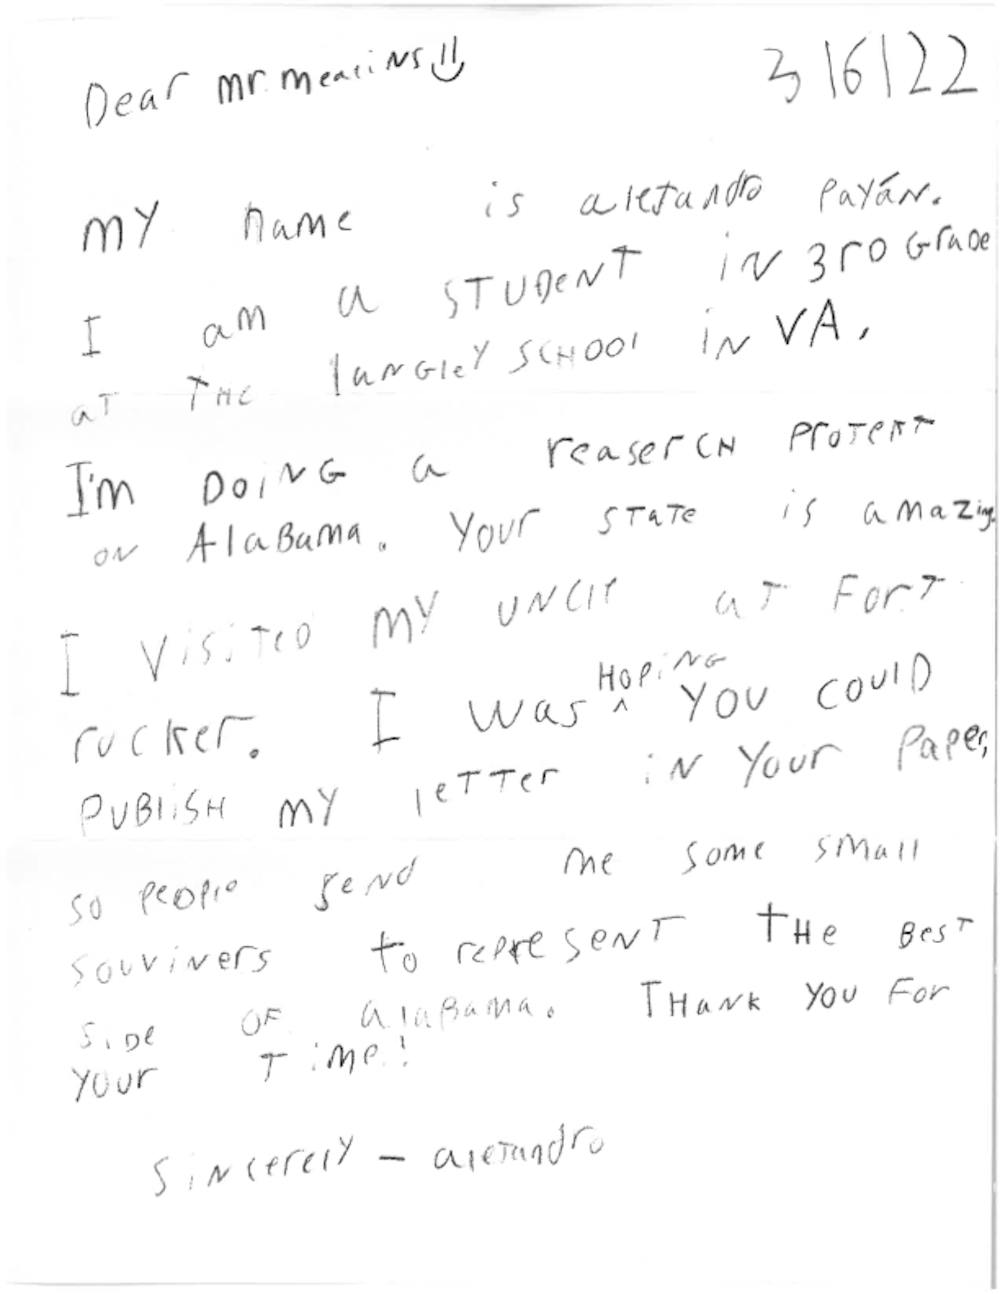 Dear Mr. Mearins!!
3/6/22
MY Name is alejandro Payán.
I am a STUDENT iN 3rD GraDe
aT THe langleY SCHOOl iN VA.
I'm DOiNG a reaserCH ProTeKT
oN AlaBama. Your STaTe is amazing.
I VisiTeD MY UNCle aT ForT
rucker. I was HOPiNG YOU COUlD
PUBliSH MY leTTer iN Your Paper,
so PeoPle SeND me some small
souviners to rePresENT THe BesT
SiDe OF AlaBama. THank YOU For
Your Time!
SiNcerelY - alejandro